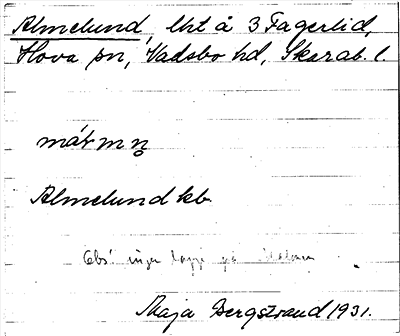 Almelund, lht å 3 Fagerlid,
Hova sn, Vadsbo hd, Skarab. l.
Almelund kb
Obs! ingen
Maja Bergstrand 1931.